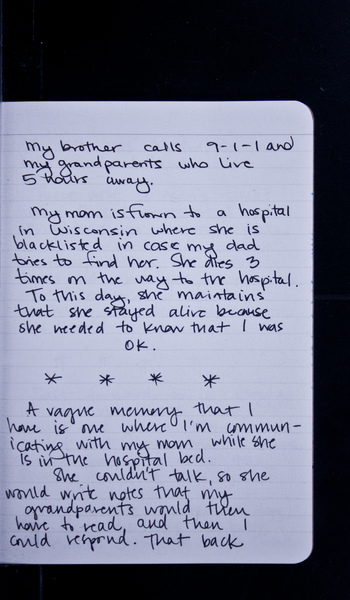 my brother calls 9-1-1 and
my grandparents who live
5 hours away.
My mom is flown to a hospital
in Wisconsin where she is
blacklisted in case my dad
tries to find her. She dies 3
times on the way to the hospital.
To this day, she maintains
that she stayed alive because
she needed to know that I was
OK.
* * * *
A vague memory that I
have is one where I'm commun-
icating with my mom while she
is in the hospital bed.
She couldn't talk, so she
would write notes that my
grandparents would then
have to read, and then I
could respond. That back